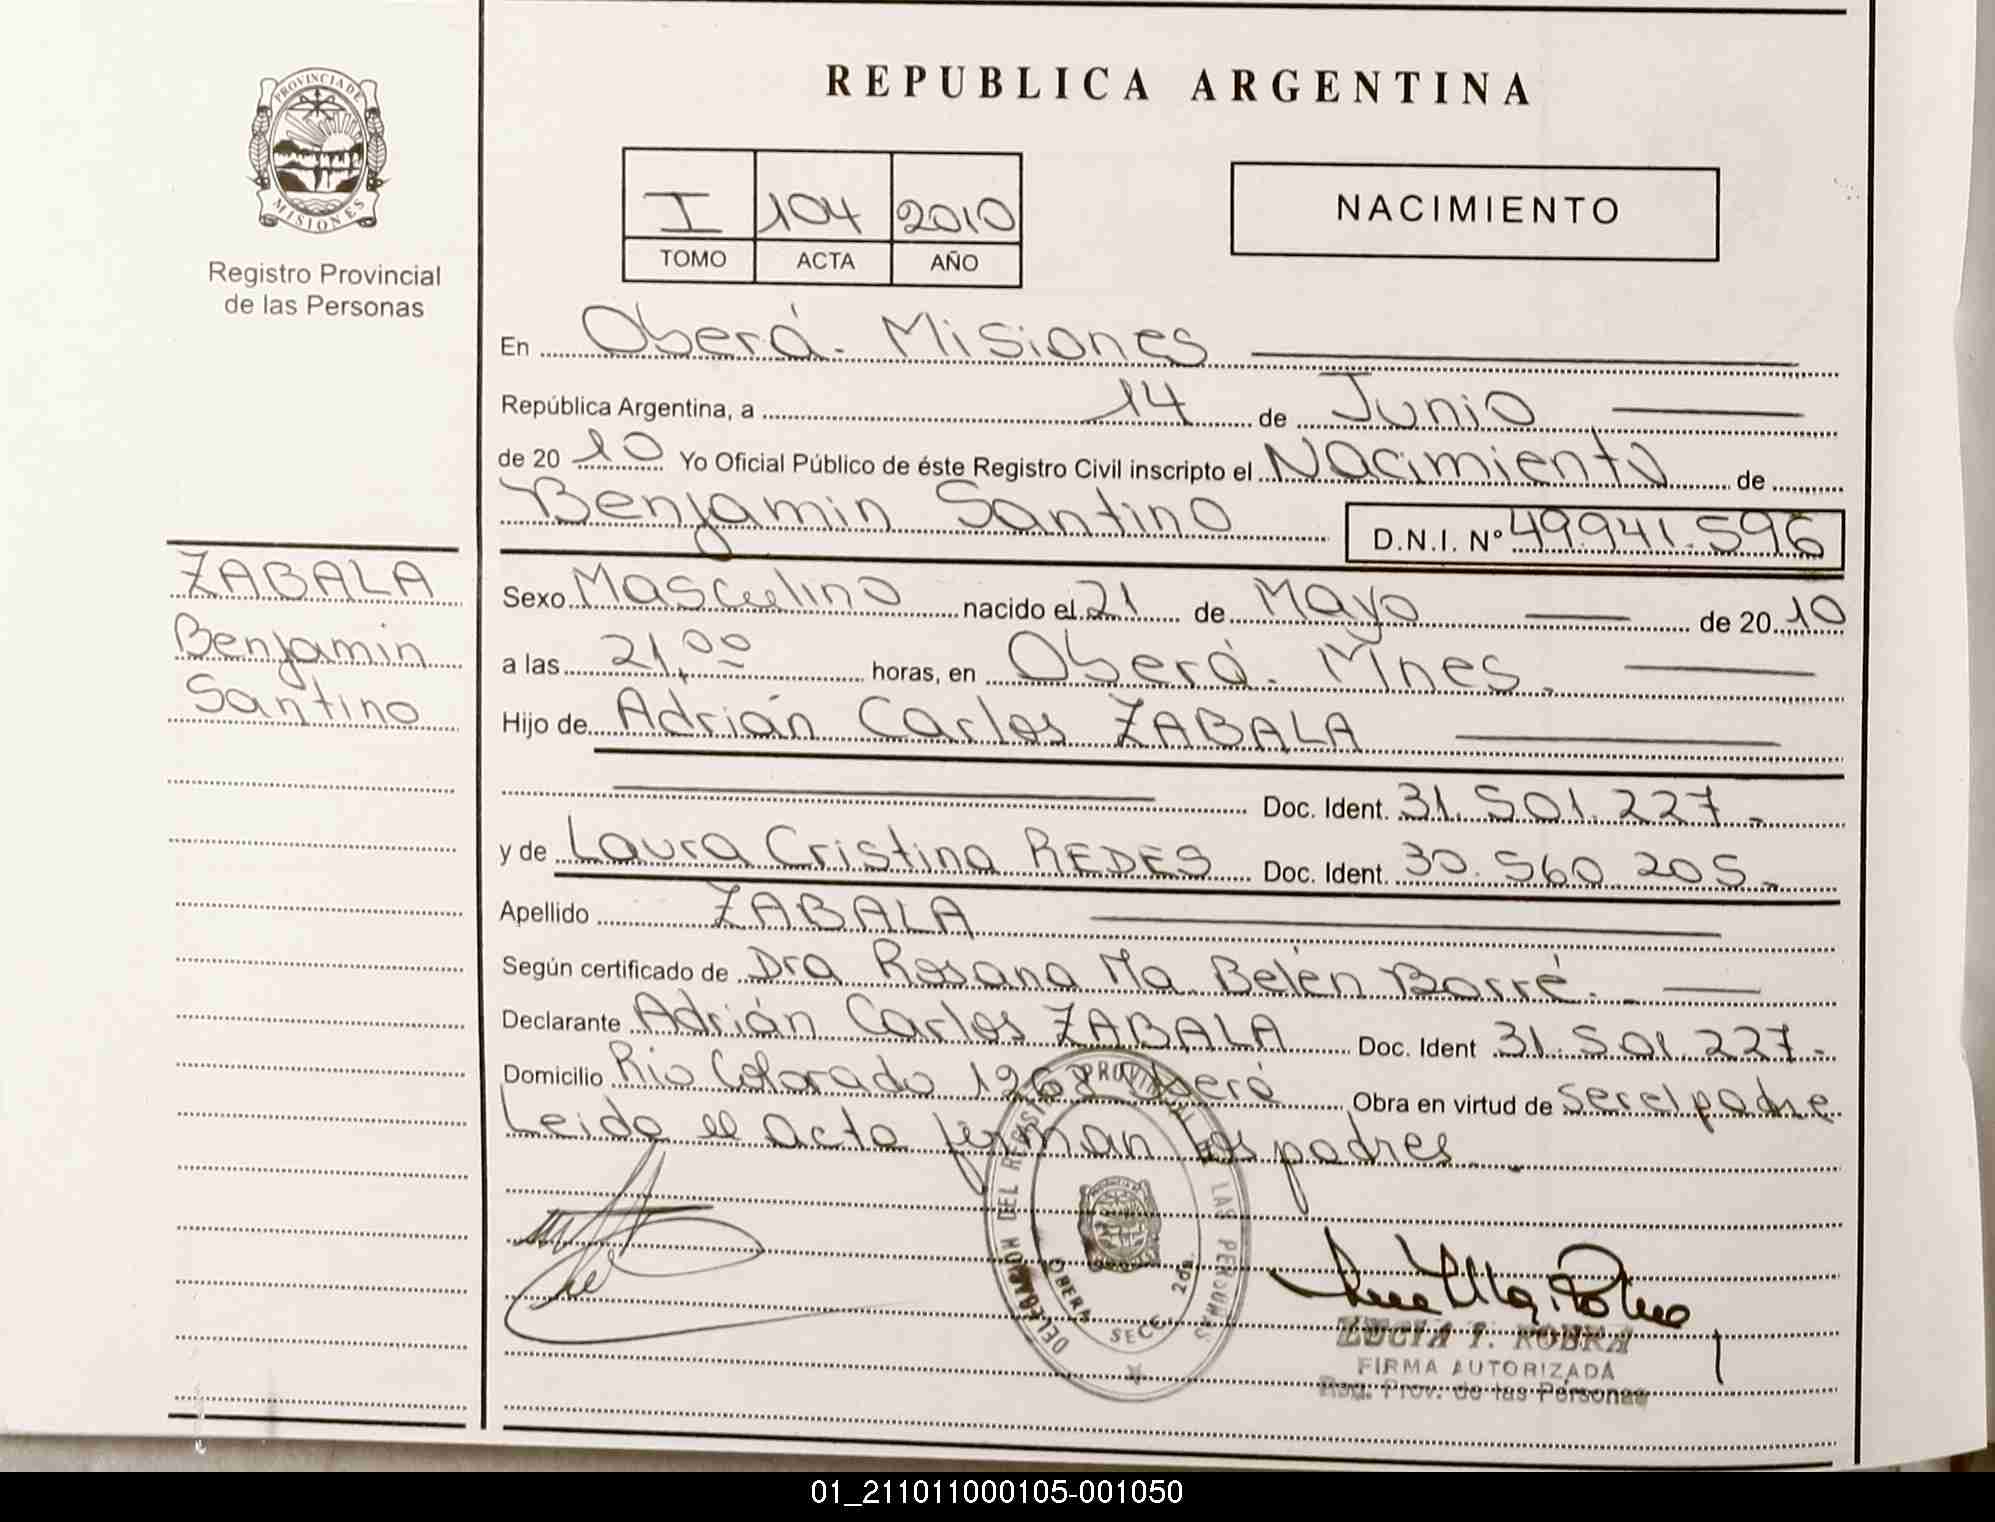 PROVINCIA DE
MISIONES
Registro Provincial
de las Personas
ZABALA
Benjamin
Santino
REPUBLICA ARGENTINA
I 104 2010
TOMO ACTA AÑO
NACIMIENTO
En Oberá - Misiones
República Argentina, a 14 de Junio
de 20 10 Yo Oficial Público de éste Registro Civil inscripto el Nacimiento de
Benjamin Santino D.N.I. Nº 49.941.596
Sexo Masculino nacido el 21 de Mayo de 20 10
a las 21,00 horas, en Oberá - Mnes.
Hijo de Adrián Carlos ZABALA
Doc. Ident. 31.501.227.-
y de Laura Cristina REDES Doc. Ident. 30.560.205.-
Apellido ZABALA
Según certificado de Dra Rosana Ma. Belén Borré.
Declarante Adrián Carlos ZABALA Doc. Ident 31.501.227.-
Domicilio Rio Colorado 1268 Oberá Obra en virtud de ser el padre
Leida el acta firman los padres.
DELEGACION DEL REGISTRO PROVINCIAL DE LAS PERSONAS
OBERA SECC. 2da.
LUCIA T. ROBRA
FIRMA AUTORIZADA
Reg. Prov. de las Personas
01_211011000105-001050